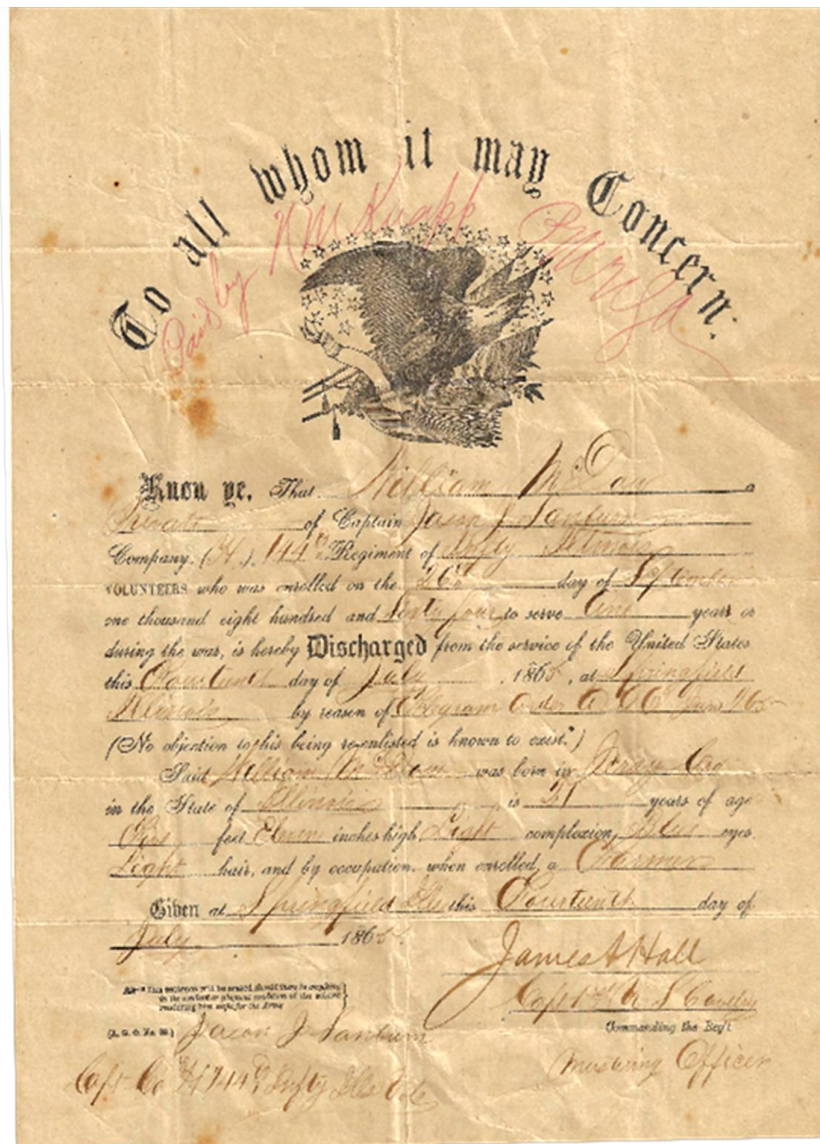 To all whom it may Concern:
Paid by
Know ye, That William
a
Private of Captain Jason J Sanburn
Company, (H.) 144th Regiment of Infty Illinois
VOLUNTEERS who was enrolled on the day of September
one thousand eight hundred and Sixty four to serve One years or
during the war, is hereby Discharged from the service of the United States
this Fourteenth day of July, 1865, at Springfield
Illinois by reason of Telegram Order A G O
(No objection to his being re-enlisted is known to exist.*)
Said William was born in Jersey Co
in the State of Illinois is 21 years of age
Five feet Eleven inches high Light complexion, Blue eyes
Light hair, and by occupation, when enrolled, a Farmer
Given at Springfield Ills this Fourteenth day of
July 1865.
James A Hall
Capt U S Cavalry
Commanding the Reg't
Mustering Officer
*This sentence will be erased should there be anything
in the conduct or physical condition of the soldier
rendering him unfit for the Army
(A. G. O. No. 99.)
Jason J Sanburn
Capt Co H 144th Infty Ills Vols